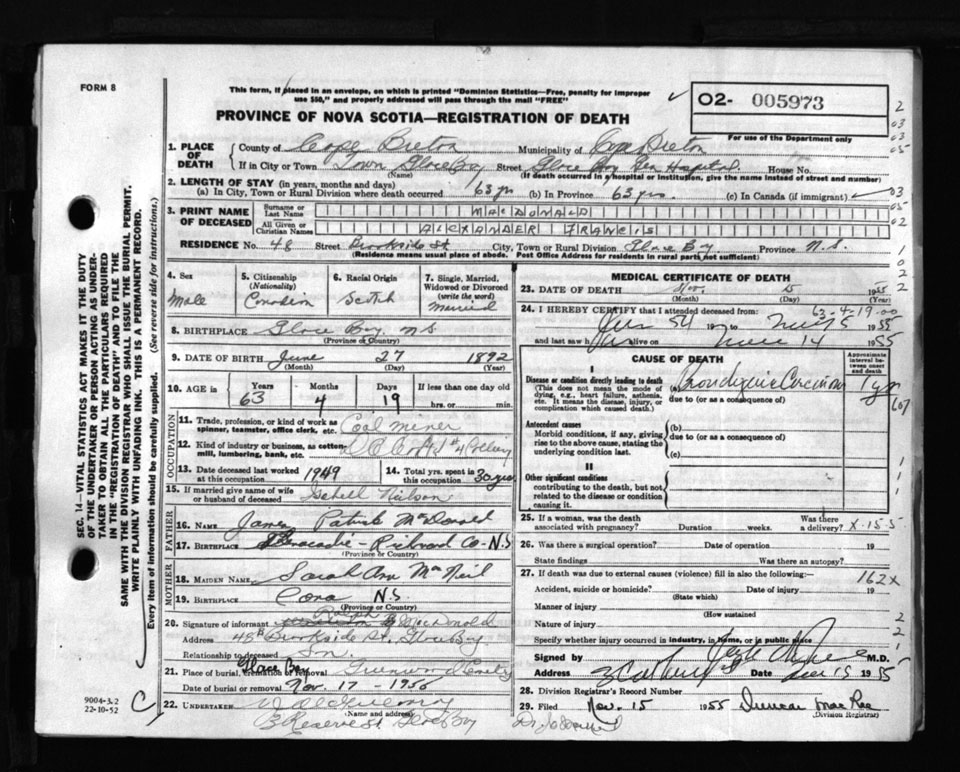 FORM 8
This form, if placed in an envelope, on which is printed "Dominion Statistics—Free, penalty for improper
use $50," and properly addressed will pass through the mail "FREE"
PROVINCE OF NOVA SCOTIA—REGISTRATION OF DEATH
O2- 005973
For use of the Department only
1. PLACE OF DEATH County of Cape Breton Municipality of Cape Breton
If in City or Town Town Glace Bay Street Glace Bay Gen Hospital House No.
(Name) (If death occurred in a hospital or institution, give the name instead of street and number)
2. LENGTH OF STAY (in years, months and days)
(a) In City, Town or Rural Division where death occurred 63 yrs (b) In Province 63 yrs. (c) In Canada (if immigrant)
3. PRINT NAME OF DECEASED Surname or Last Name MACDONALD
All Given or Christian Names ALEXANDER FRANCIS
RESIDENCE No. 48 Street Brookside St City, Town or Rural Division Glace Bay Province N.S.
(Residence means usual place of abode. Post Office Address for residents in rural parts not sufficient)
4. Sex Male
5. Citizenship (Nationality) Canadian
6. Racial Origin Scotch
7. Single, Married, Widowed or Divorced (write the word) Married
8. BIRTHPLACE Glace Bay, NS
(Province or Country)
9. DATE OF BIRTH June 27 1892
(Month) (Day) (Year)
10. AGE is Years 63 Months 4 Days 19 If less than one day old hrs. or min.
OCCUPATION
11. Trade, profession, or kind of work as spinner, teamster, office clerk, etc. Coal miner
12. Kind of industry or business, as cotton-mill, lumbering, bank, etc. Colliery
13. Date deceased last worked at this occupation 1949
14. Total yrs. spent in this occupation 30 yrs
15. If married give name of wife or husband of deceased
FATHER
16. NAME James Patrick McDonald
17. BIRTHPLACE Richmond Co- N.S
(Province or Country)
MOTHER
18. MAIDEN NAME Sarah Ann MacNeil
19. BIRTHPLACE N.S.
(Province or Country)
20. Signature of informant McDonald
Address 48 B Brookside St, Glace Bay
Relationship to deceased Son.
21. Place of burial, cremation or removal Glace Bay Greenwood
Date of burial or removal Nov. 17 - 1956
22. UNDERTAKER
(Name and address)
Reserve St Glace Bay
MEDICAL CERTIFICATE OF DEATH
23. DATE OF DEATH Nov. 15 1955
(Month) (Day) (Year)
63-4-19-00
24. I HEREBY CERTIFY that I attended deceased from:
Jan 54 19 to Nov 15 1955
and last saw h alive on Nov 14 1955
CAUSE OF DEATH
Approximate interval between onset and death
I
Disease or condition directly leading to death
(This does not mean the mode of dying, e.g., heart failure, asthenia, etc. It means the disease, injury, or complication which caused death.)
Bronchogenic Carcinoma 1 yr
due to (or as a consequence of)
Antecedent causes
Morbid conditions, if any, giving rise to the above cause, stating the underlying condition last.
(b)
due to (or as a consequence of)
(c)
II
Other significant conditions
contributing to the death, but not related to the disease or condition causing it.
25. If a woman, was the death associated with pregnancy? Duration weeks. Was there a delivery? X-15-5
26. Was there a surgical operation? Date of operation 19
State findings Was there an autopsy?
27. If death was due to external causes (violence) fill in also the following:— 162X
Accident, suicide or homicide? Date of injury 19
(State which)
Manner of injury
(How sustained
Nature of injury
Specify whether injury occurred in industry, in home, or in public place
Signed by M.D.
Address Date Nov 15 1955
28. Division Registrar's Record Number
29. Filed Nov. 15 1955 Duncan MacRae
(Division Registrar)
SEC. 14—VITAL STATISTICS ACT MAKES IT THE DUTY
OF THE UNDERTAKER OR PERSON ACTING AS UNDER-
TAKER TO OBTAIN ALL THE PARTICULARS REQUIRED
IN THE "REGISTRATION OF DEATH" AND TO FILE THE
SAME WITH THE DIVISION REGISTRAR WHO SHALL ISSUE THE BURIAL PERMIT.
WRITE PLAINLY WITH UNFADING INK. THIS IS A PERMANENT RECORD.
Every item of information should be carefully supplied. (See reverse side for instructions.)
9004-3.2
22-10-52